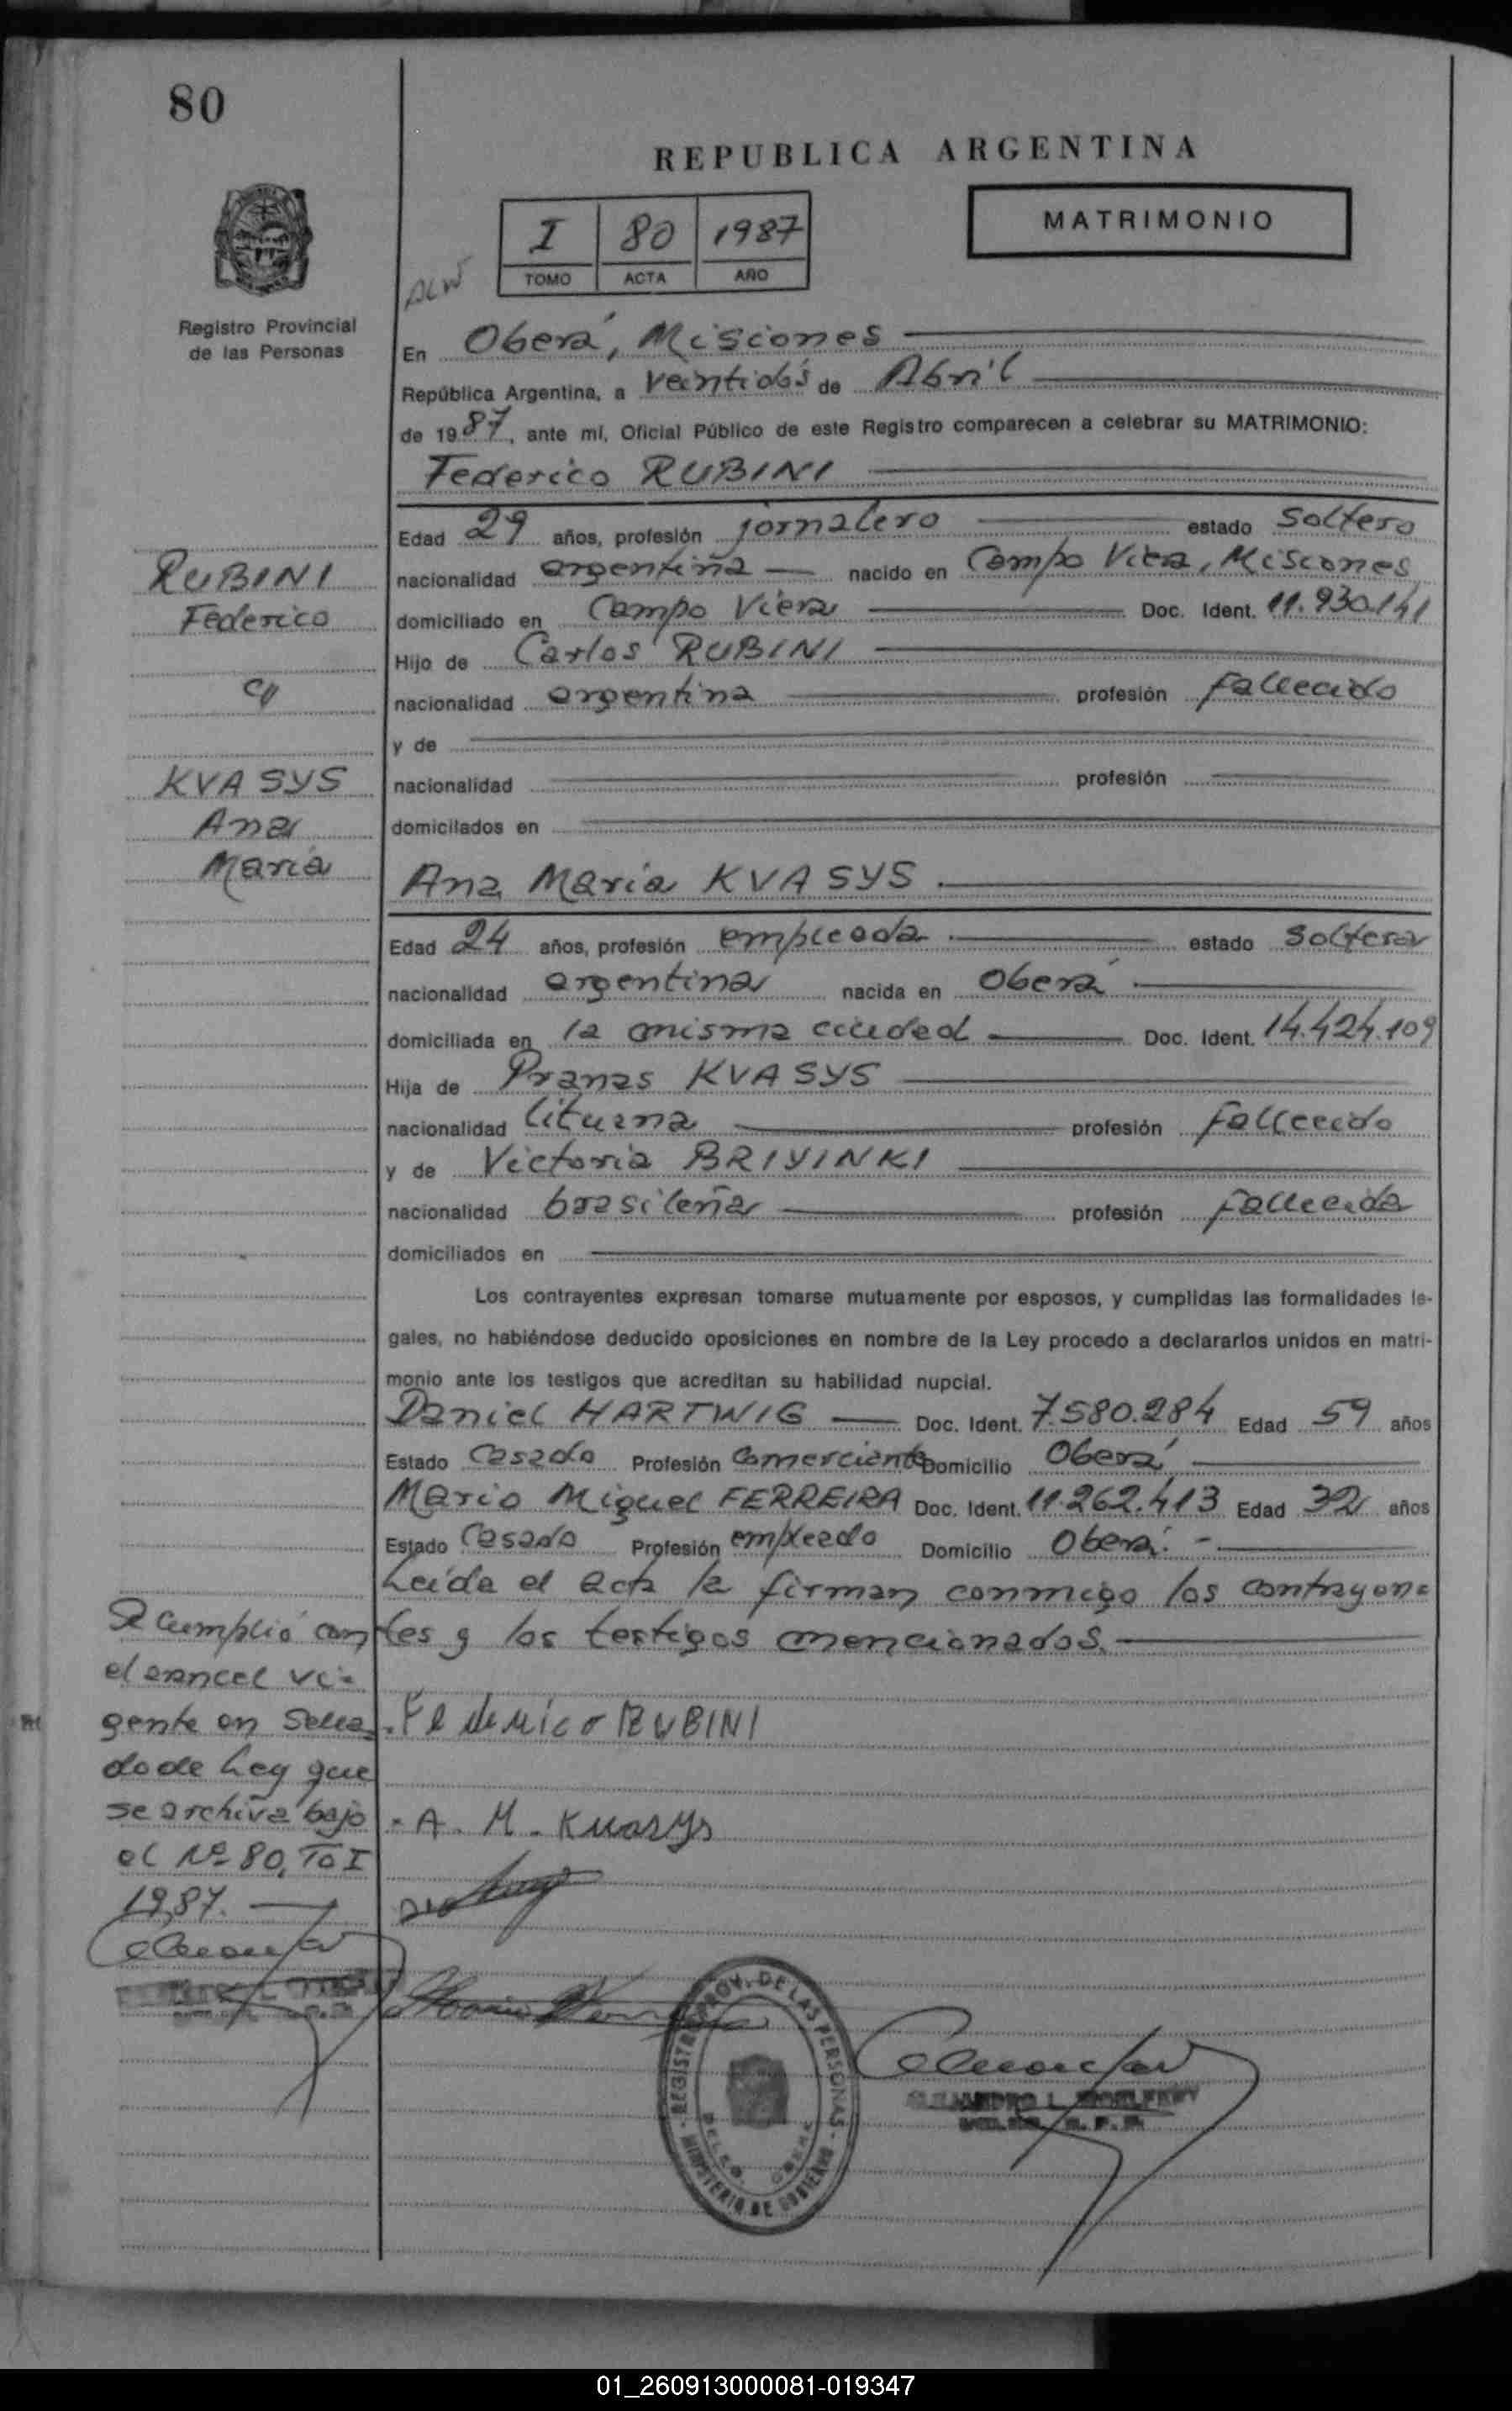 80
REPUBLICA ARGENTINA
I 80 1987
TOMO ACTA AÑO
MATRIMONIO
Registro Provincial
de las Personas
En Oberá, Misiones
República Argentina, a veintidós de Abril
de 1987, ante mí, Oficial Público de este Registro comparecen a celebrar su MATRIMONIO:
Federico RUBINI
Edad 29 años, profesión jornalero estado soltero
nacionalidad argentina nacido en Campo Viera, Misiones
domiciliado en Campo Viera Doc. Ident. 11.930.141
Hijo de Carlos RUBINI
nacionalidad argentina profesión fallecido
y de
nacionalidad profesión
domiciliados en
RUBINI
Federico
c/
KVASYS
Ana
María
Ana María KVASYS
Edad 24 años, profesión empleada estado soltera
nacionalidad argentina nacida en Oberá
domiciliada en la misma ciudad Doc. Ident. 14.424.109
Hija de Pranas KVASYS
nacionalidad lituana profesión fallecido
y de Victoria BRIYINKI
nacionalidad brasileña profesión fallecida
domiciliados en
Los contrayentes expresan tomarse mutuamente por esposos, y cumplidas las formalidades le-
gales, no habiéndose deducido oposiciones en nombre de la Ley procedo a declararlos unidos en matri-
monio ante los testigos que acreditan su habilidad nupcial.
Daniel HARTWIG Doc. Ident. 7.580.284 Edad 59 años
Estado casado Profesión comerciante Domicilio Oberá
Mario Miguel FERREIRA Doc. Ident. 11.262.413 Edad 32 años
Estado casado Profesión empleado Domicilio Oberá.-
Leída el acta la firman conmigo los contrayen=
tes y los testigos mencionados.
Se cumplió con
el arancel vi=
gente en sella-
do de Ley que
se archiva bajo
el Nº 80, Tº I
1987.
Federico RUBINI
A. M. Kvasys
REGISTRO PROV. DE LAS PERSONAS
MINISTERIO DE GOBIERNO
01_260913000081-019347